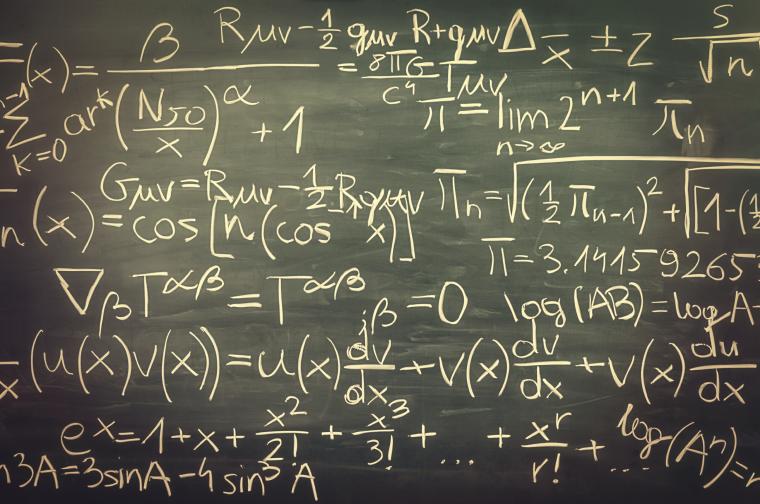 =(x) = β / ((N₅₀/x)^α + 1)
Rμν − 1/2 gμν R + gμν Δ = 8πG/c⁴ Tμν
x̄ ± z s/√n
n-1 ∑ K=0 ar^k
π = lim n→∞ 2^(n+1) π_n
Gμν = Rμν − 1/2 R
π_n = √((1/2 π_(n-1))² + √[1-(1/2
n(x) = cos[n(cos x)]
π = 3.1415926535
∇_β T^(αβ) = T^(αβ) ;β = 0
log(AB) = log A-
x (u(x)v(x)) = u(x) dv/dx + v(x) dv/dx + v(x) du/dx
e^x = 1 + x + x²/2! + x³/3! + ... + x^r/r! + ....
log(Aⁿ) =
n3A = 3sinA − 4 sin³ A